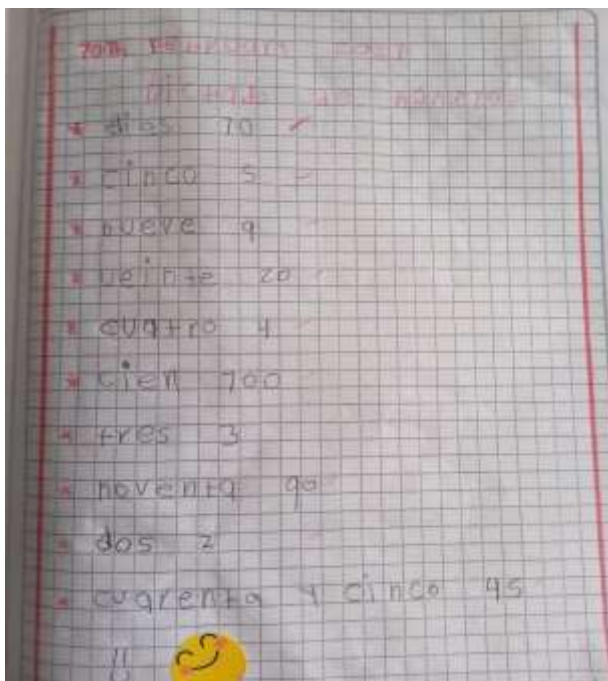 dies 10
cinco 5
nueve 9
veinte 20
cuatro 4
cien 100
tres 3
noventa 90
dos 2
cuarenta y cinco 45